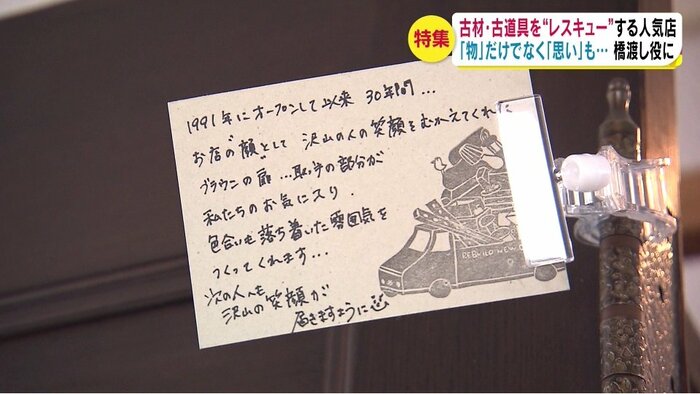 特集
古材・古道具を“レスキュー”する人気店
「物」だけでなく「思い」も… 橋渡し役に
1991年にオープンして以来 30年間...
お店の"顔"として 沢山の人の笑顔をむかえてくれた
ブラウンの扉...取っ手の部分が
私たちのお気に入り.
色合いも落ち着いた雰囲気を
つくってくれます...
次の人へも
沢山の笑顔が
届きますように
REBUILD NEW